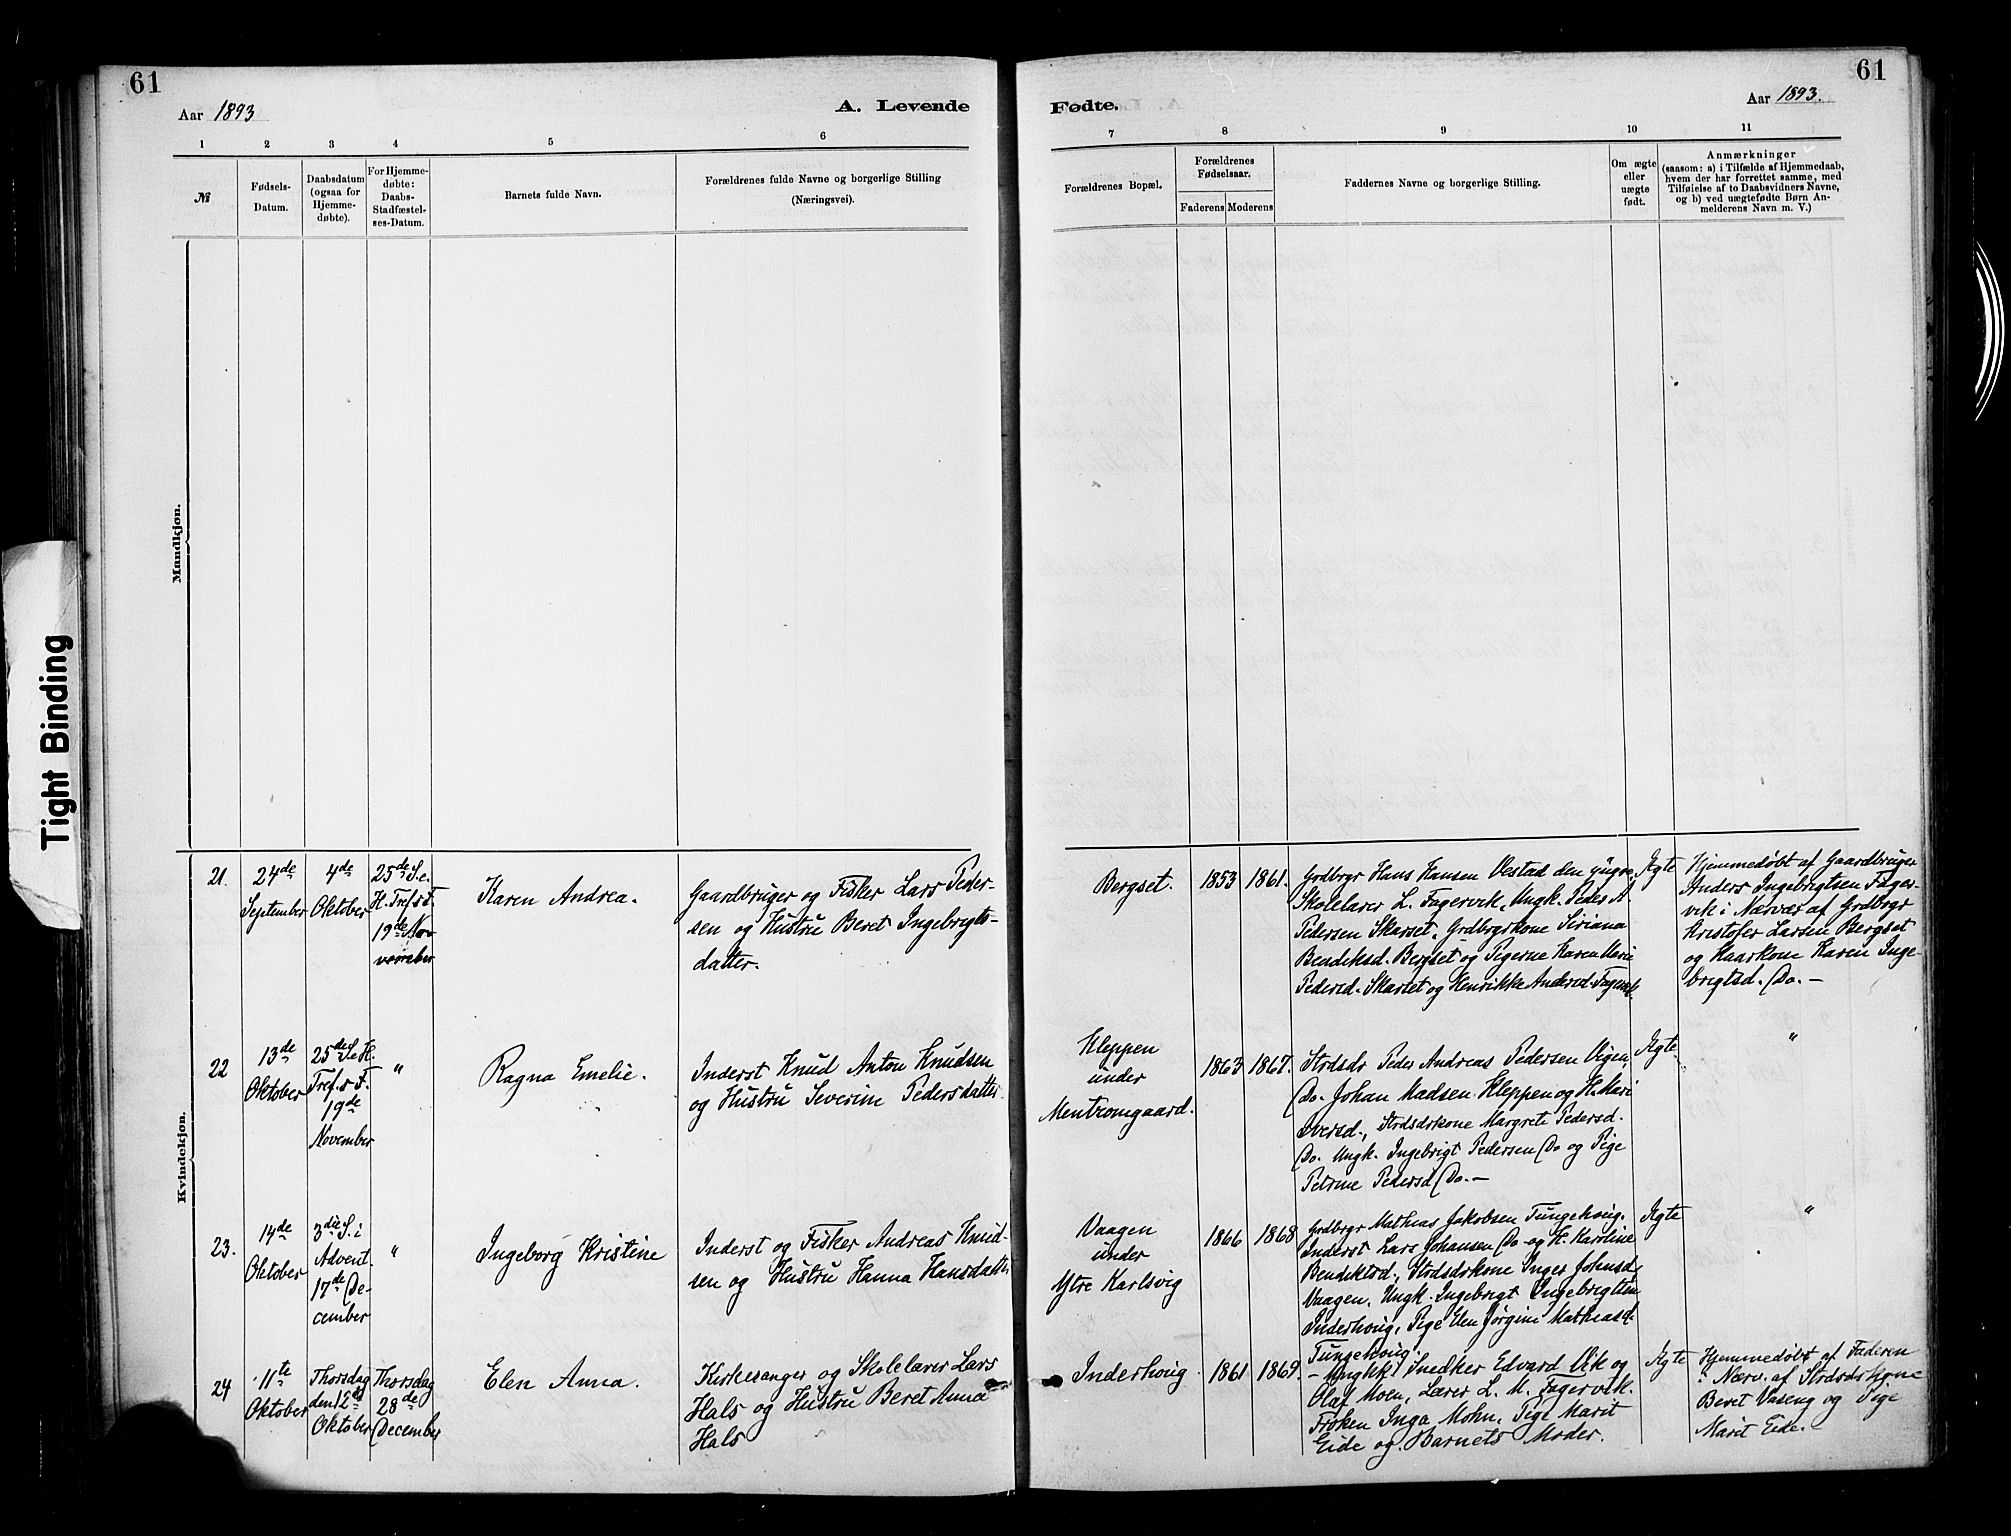 61
Aar 1893
A. Levende
1 2 3 4 5 6
№
Fødsels-
Datum.
Daabsdatum
(ogsaa for
Hjemme-
døbte).
For Hjemme-
døbte:
Daabs-
Stadfæstel-
ses-Datum.
Barnets fulde Navn.
Forældrenes fulde Navne og borgerlige Stilling
(Næringsvei).
Mandkjøn.
Kvindekjøn.
21.
24de
September
4de
Oktober
25de S. e.
H. Tref.s F.
19de No-
vember
Karen Andrea.
Gaardbruger og Fisker Lars Peder-
sen og Hustru Beret Ingebrigts-
datter.
22
13de
Oktober
25de S. e. H.
Tref.s F.
19de
November
"
Ragna Emelie.
Inderst Knud Anton Knudsen
og Hustru Severine Pedersdatter.
23.
14de
Oktober
3die S. i
Advent.
17de De-
cember
"
Ingeborg Kristine
Inderst og Fisker Andreas Knud-
sen og Hustru Hanna Hansdatter
24
11te
Oktober
Thorsdag
den 12te
Oktober
Thorsdag
28de
December
Elen Anna.
Kirkesanger og Skolelærer Lars
Hals og Hustru Beret Anna
Hals
61
Fødte.
Aar 1893.
7 8 9 10 11
Forældrenes Bopæl.
Forældrenes
Fødselsaar.
Faderens Moderens
Faddernes Navne og borgerlige Stilling.
Om ægte
eller
uægte
født.
Anmærkninger
(saasom: a) i Tilfælde af Hjemmedaab,
hvem der har forrettet samme, med
Tilføielse af to Daabsvidners Navne,
og b) ved uægtefødte Børn An-
melderens Navn m. V.)
Bergset.
1853 1861.
Grdbrgr Hans Hansen Vestad den yngre,
Skolelærer L. Fagervik, Ungk. Peder A.
Pedersen Skarset, Grdbrgrkone Siriana
Bendiksd. Bergset og Pigerne Karen Marie
Pedersd. Skarset og Henrikke Andersd. Fagervik.
Ægte
Hjemmedøbt af Gaardbruger
Anders Ingebrigtsen Fager-
vik i Nærvær af Grdbrgr
Kristofer Larsen Bergset
og Kaarkone Karen Inge-
brigtsd. Do. —
Kleppen
under
Mentromgaard.
1863 1867.
Strdsdr Peder Andreas Pedersen Vigen,
Do. Johan Madsen Kleppen og H. Mari
Iversd., Strdsdrkone Margrete Pedersd.
Do. Ungk. Ingebrigt Pedersen Do og Pige
Petrine Pedersd Do. —
Ægte
"
Vaagen
under
Ytre Karlsvig
1866 1868
Grdbrgr Mathias Jakobsen Tungehoug.
Inderst Lars Johansen Do og H. Karoline
Bendiktsd., Strdsdrkone Inger Johnsd.
Vaagen, Ungk. Ingebrigt Ingebrigtsen
Inderhoug, Pige Elen Jørgine Mathiasd.
Tungehoug.
Ægte
"
Inderhoug
1861 1869.
— Ungkk. Snedker Edvard Vik og
Olaf Moen, Lærer L. M. Fagervik.
Frøken Inga Mohn, Pige Marit
Eide og Barnets Moder.
Ægte
Hjemmedøbt af Faderen
i Nærv. af Strdsdrkone
Beret Vaseng og Pige
Marit Eide. —
Tight Binding